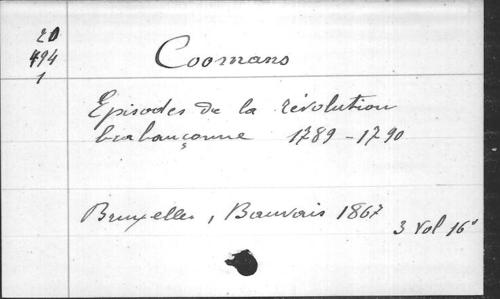 20
494
1
Coomans
Episodes de la révolution
brabançonne 1789-1790
Bruxelles, Bauvais 1867
3 vol 16°